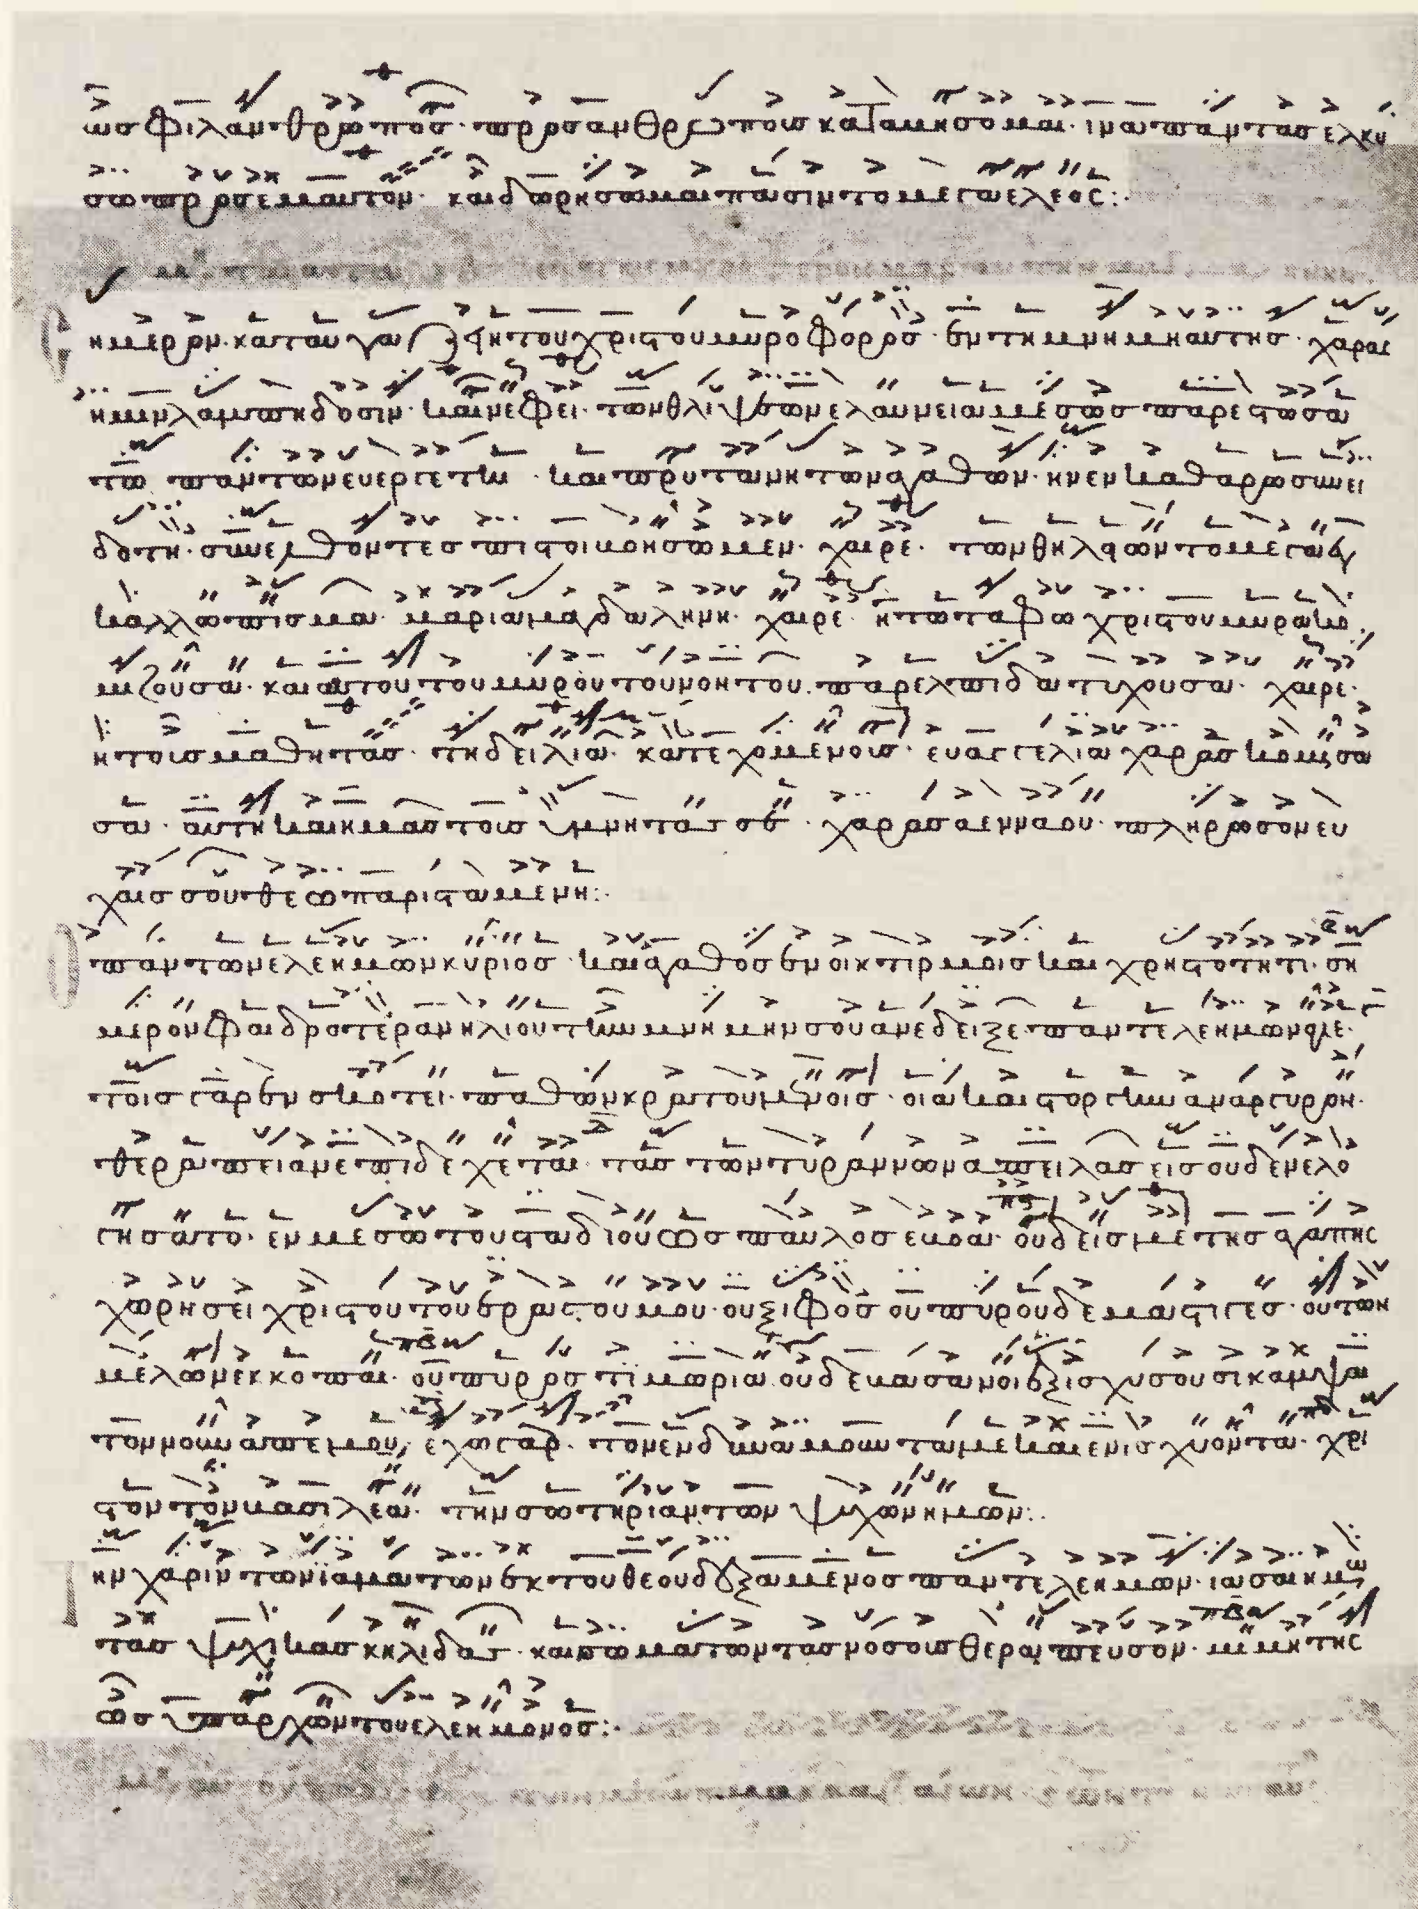 ωσ φιλανθρωποσ· προσ ανθρωποισ καταμησομαι· ινα παντασ ελκυ
σω προσ εμαυτον· και δωρησωμαι πασιν το μεγα ελεος:·
ημερον· καταυγαζει η του χριστου μυροφοροσ· εν τη μνημη αυτησ· χαρασ
ημιν λαμπηδοσιν· και νεφει των θλιψεων ελαυνει
τω παντων ευεργετη· και πρυτανη των αγαθων· ην εν καθαρω συνει
δοτη· συνελθοντεσ πιστοι βοησωμεν· χαιρε· των θηλιων το μεγα
καλλωπισμα· μαρια μαγδαληνη· χαιρε· η τω ταφω χριστου μυρα κο
μιζουσα· και αυτου του μυρου του νοητου· παρ ελπιδα τυχουσα· χαιρε·
η τοισ μαθηταισ· τη δειλια· κατεχομενοισ· ευαγγελια χαρασ κομισα
σα· αυτη και ημασ τουσ υμνητασ σου· χαρασ αεννου· πληρωσον ευ
χαισ σου θεω παρισταμενη:·
παντων ελεημων κυριοσ· και αγαθοσ εν οικτιρμοισ και χρηστοτητι· ση
μερον φαιδροτεραν ηλιου την μνημην σου ανεδειξε παντελεημων
τοισ γαρ εν σκοτει· παθων κρατουμενοισ· οια και στοργην αναργυρον·
θεραπειαν επιδεχεται· τασ των τυραννων απειλασ εισ ουδεν ελο
γησατο· εν μεσω του σταδιου ωσ παυλοσ εβοα· ουδεισ με τησ αγαπησ
χωρησει χριστου του εραστου μου· ου ξιφοσ ου πυρ ουδε μαστιγεσ· ου των
μελων εκκοπαι· ου πυροσ τιμωρια ουδε βασανοι εξισχυσουσι καμψαι
τον νουν απ εμου, εχω γαρ· τον ενδυναμουντα με και ενισχυοντα· χρι
στον τον βασιλεα· την σωτηριαν των ψυχων ημων:·
ην χαριν των ιαματων εκ του θεου δεξαμενοσ παντελεημων· ιασαι ημων
τασ ψυχικασ κηλιδασ· και σωματων τασ νοσουσ θεραπευσον· μιμητησ
ωσ υπαρχων του ελεημονοσ:·